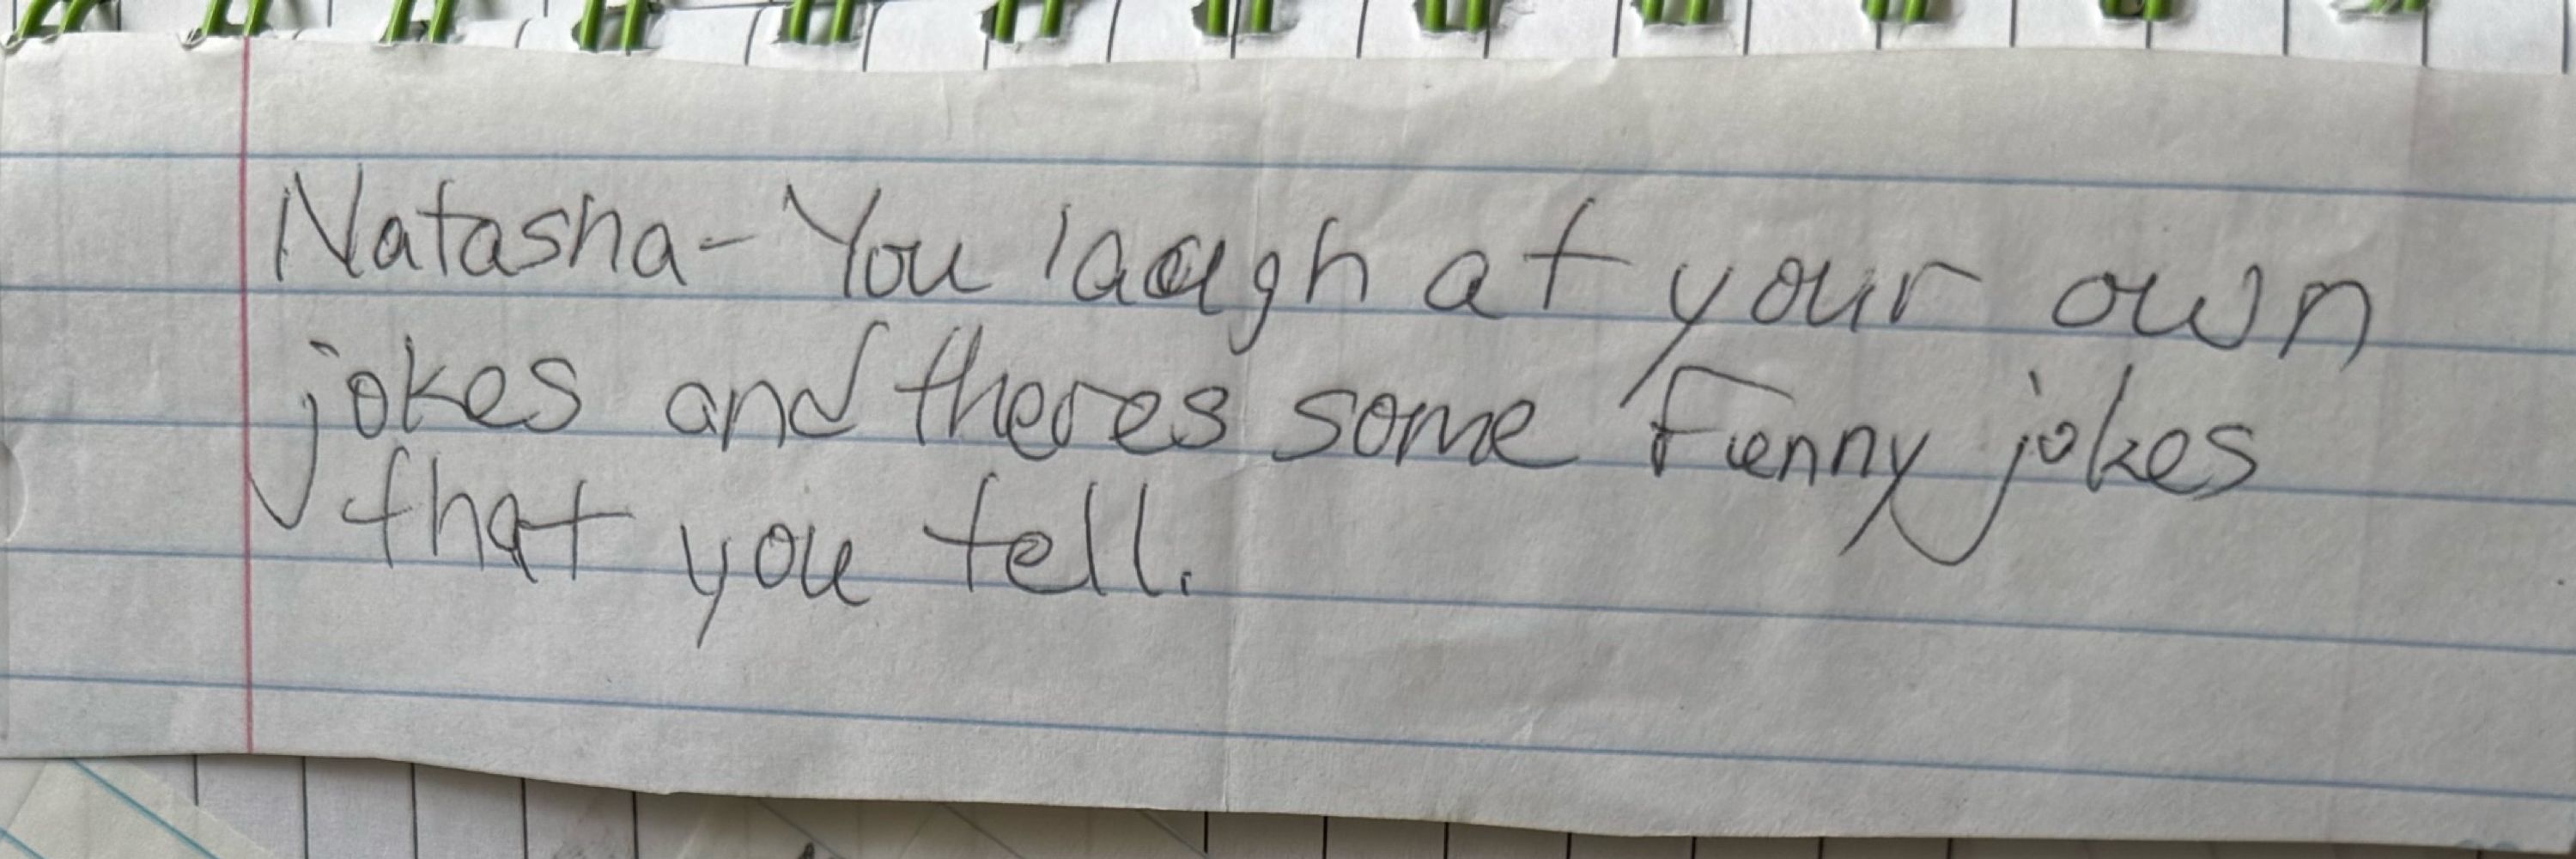 Natasha- You laugh at your own
jokes and theres some Funny jokes
that you tell.